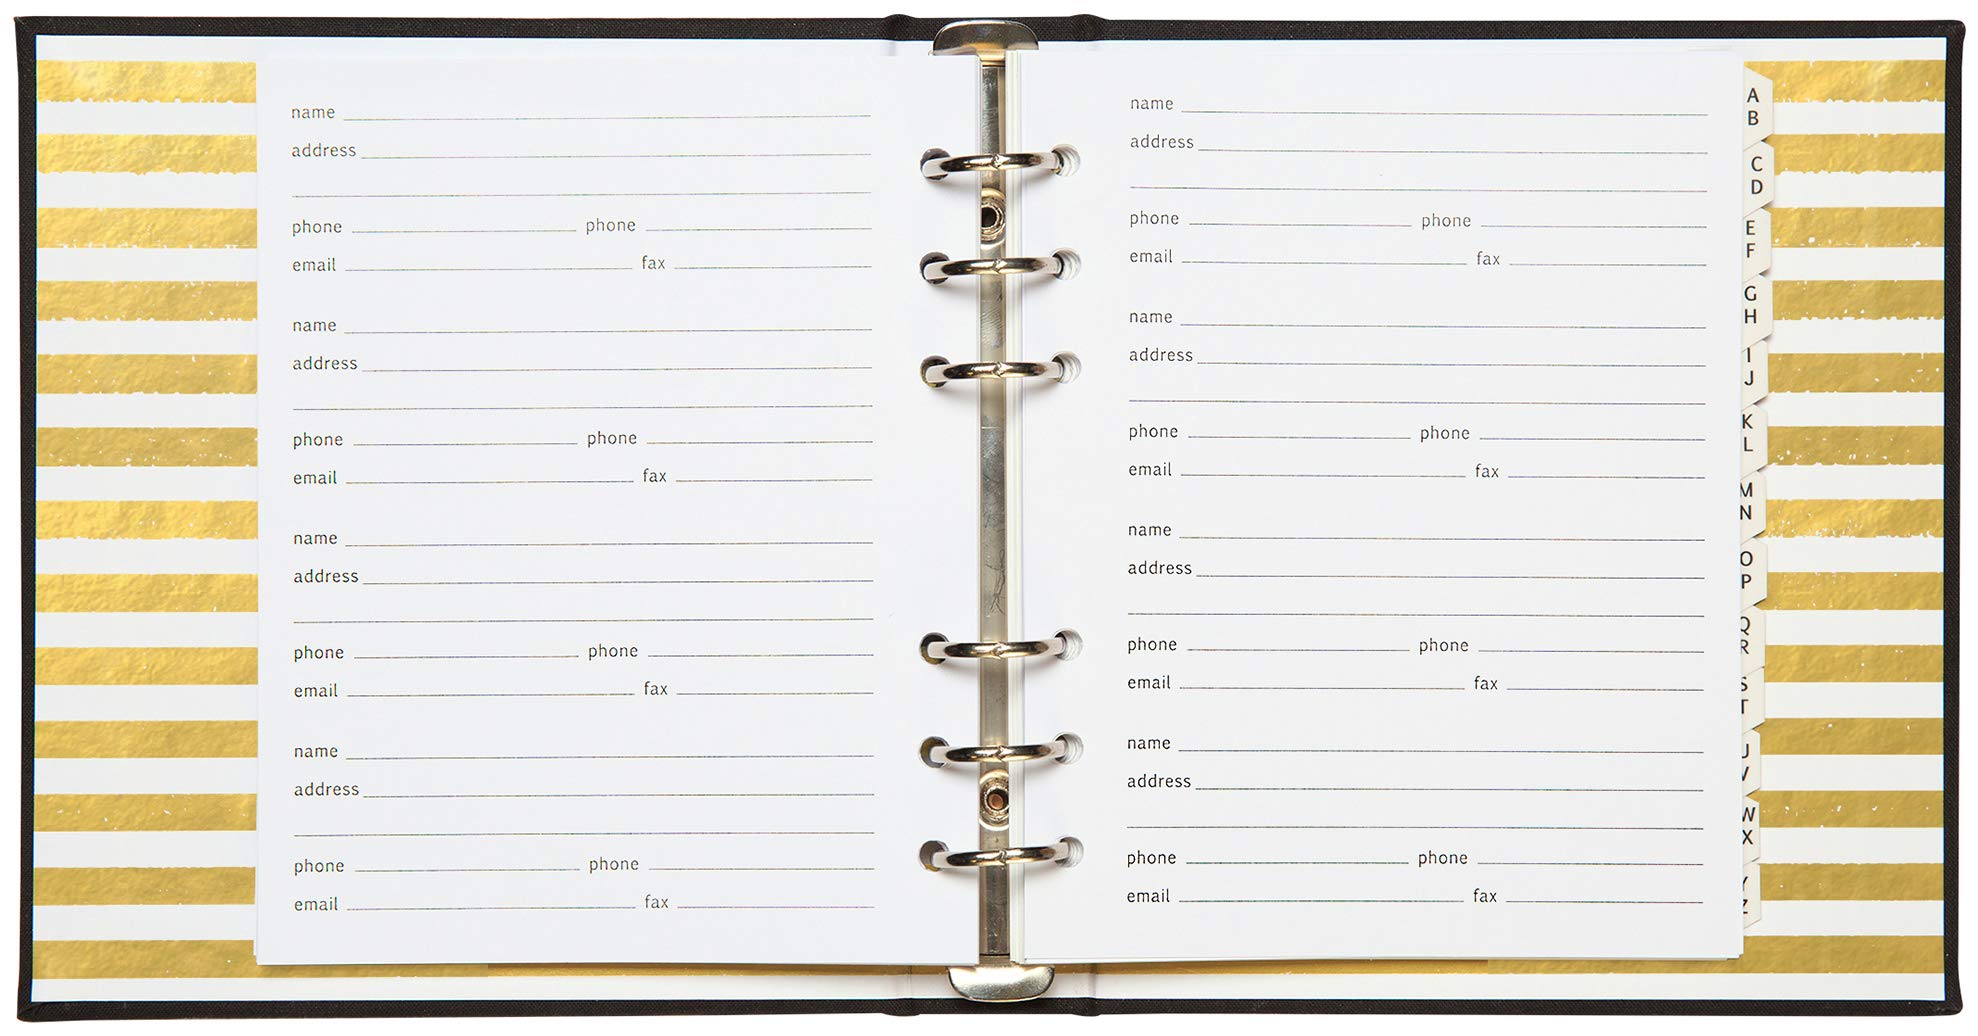 name
address
phone phone
email fax
name
address
phone phone
email fax
name
address
phone phone
email fax
name
address
phone phone
email fax
name
address
phone phone
email fax
name
address
phone phone
email fax
name
address
phone phone
email fax
name
address
phone phone
email fax
A
B
C
D
E
F
G
H
I
J
K
L
M
N
O
P
Q
R
S
T
U
V
W
X
Y
Z